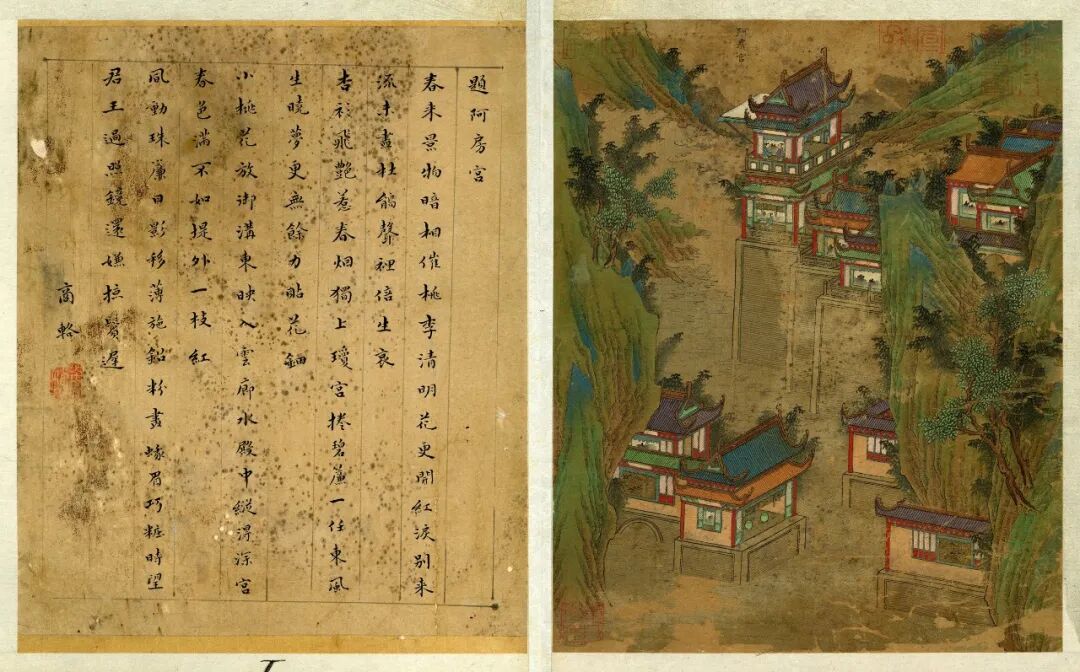 題阿房宮
春来景物暗相催桃李清明花更開紅淚別来
流未盡杜鵑聲裡倍生哀
杏衫飛艷惹春烟獨上瓊宮捲碧簾一任東風
生曉夢更無餘力貼花鈿
小桃花放御溝東映入雲廊水殿中縱得深宮
春色滿不如堤外一枝紅
風動珠簾日影移薄施鉛粉畫蛾眉巧粧時望
君王過照鏡還嫌掠鬢遲
商輅
阿房宮